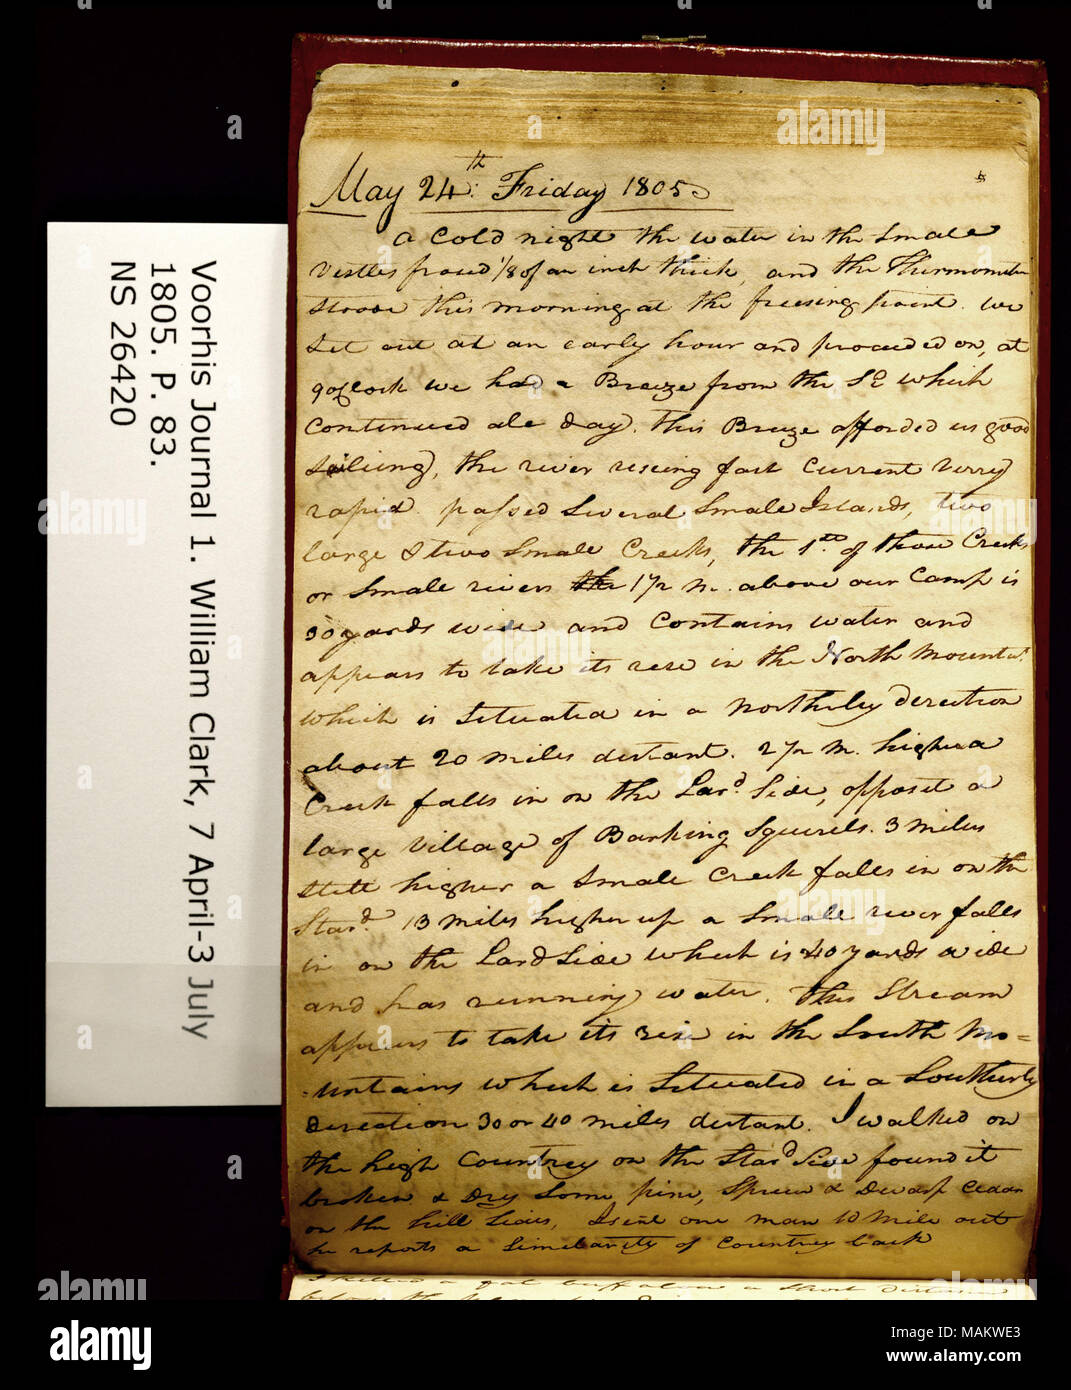 May 24th Friday 1805
a Cold night the water in the Small
Vestles frosed 1/8 of an inch thick, and the Thermometer
Stood this morning at the freesing point. we
Set out at an early hour and proceeded on, at
9 oClock we had a Breeze from the S E which
Continued all day. this Breeze afforded us good
Saileing, the river riseing fast Current verry
rapid. passed Several Small Islands, two
large & two Small Creeks, the 1st of those Creeks
or Small rivers the 1½ m. above our Camp is
30 yards wide and Contains water and
appears to take its rise in the North Mountns.
which is Situated in a northerly derection
about 20 miles distant. 2½ m. higher a
Creek falls in on the Lard. Side, opposit a
large village of Barking Squirels. 3 miles
Still higher a Small Creek falls in on the
Stard. 13 miles higher up a Small river falls
in on the Lard Side which is 40 yards wide
and has running water. This Stream
appears to take its rise in the South Mo=
=untains which is Situated in a Southerly
direction 30 or 40 miles distant. I walked on
the high Countrey on the Stard Side found it
broken & Dry Some pine, Spruce & Dwarf Cedar
on the hill Sides, I sent one man 10 mile out
he reports a Similarity of Countrey back
I killed a fat buffalow a short distance
Voorhis Journal 1. William Clark, 7 April-3 July
1805. P. 83.
NS 26420
alamy
a
alamy
Image ID: MAKWE3
www.alamy.com